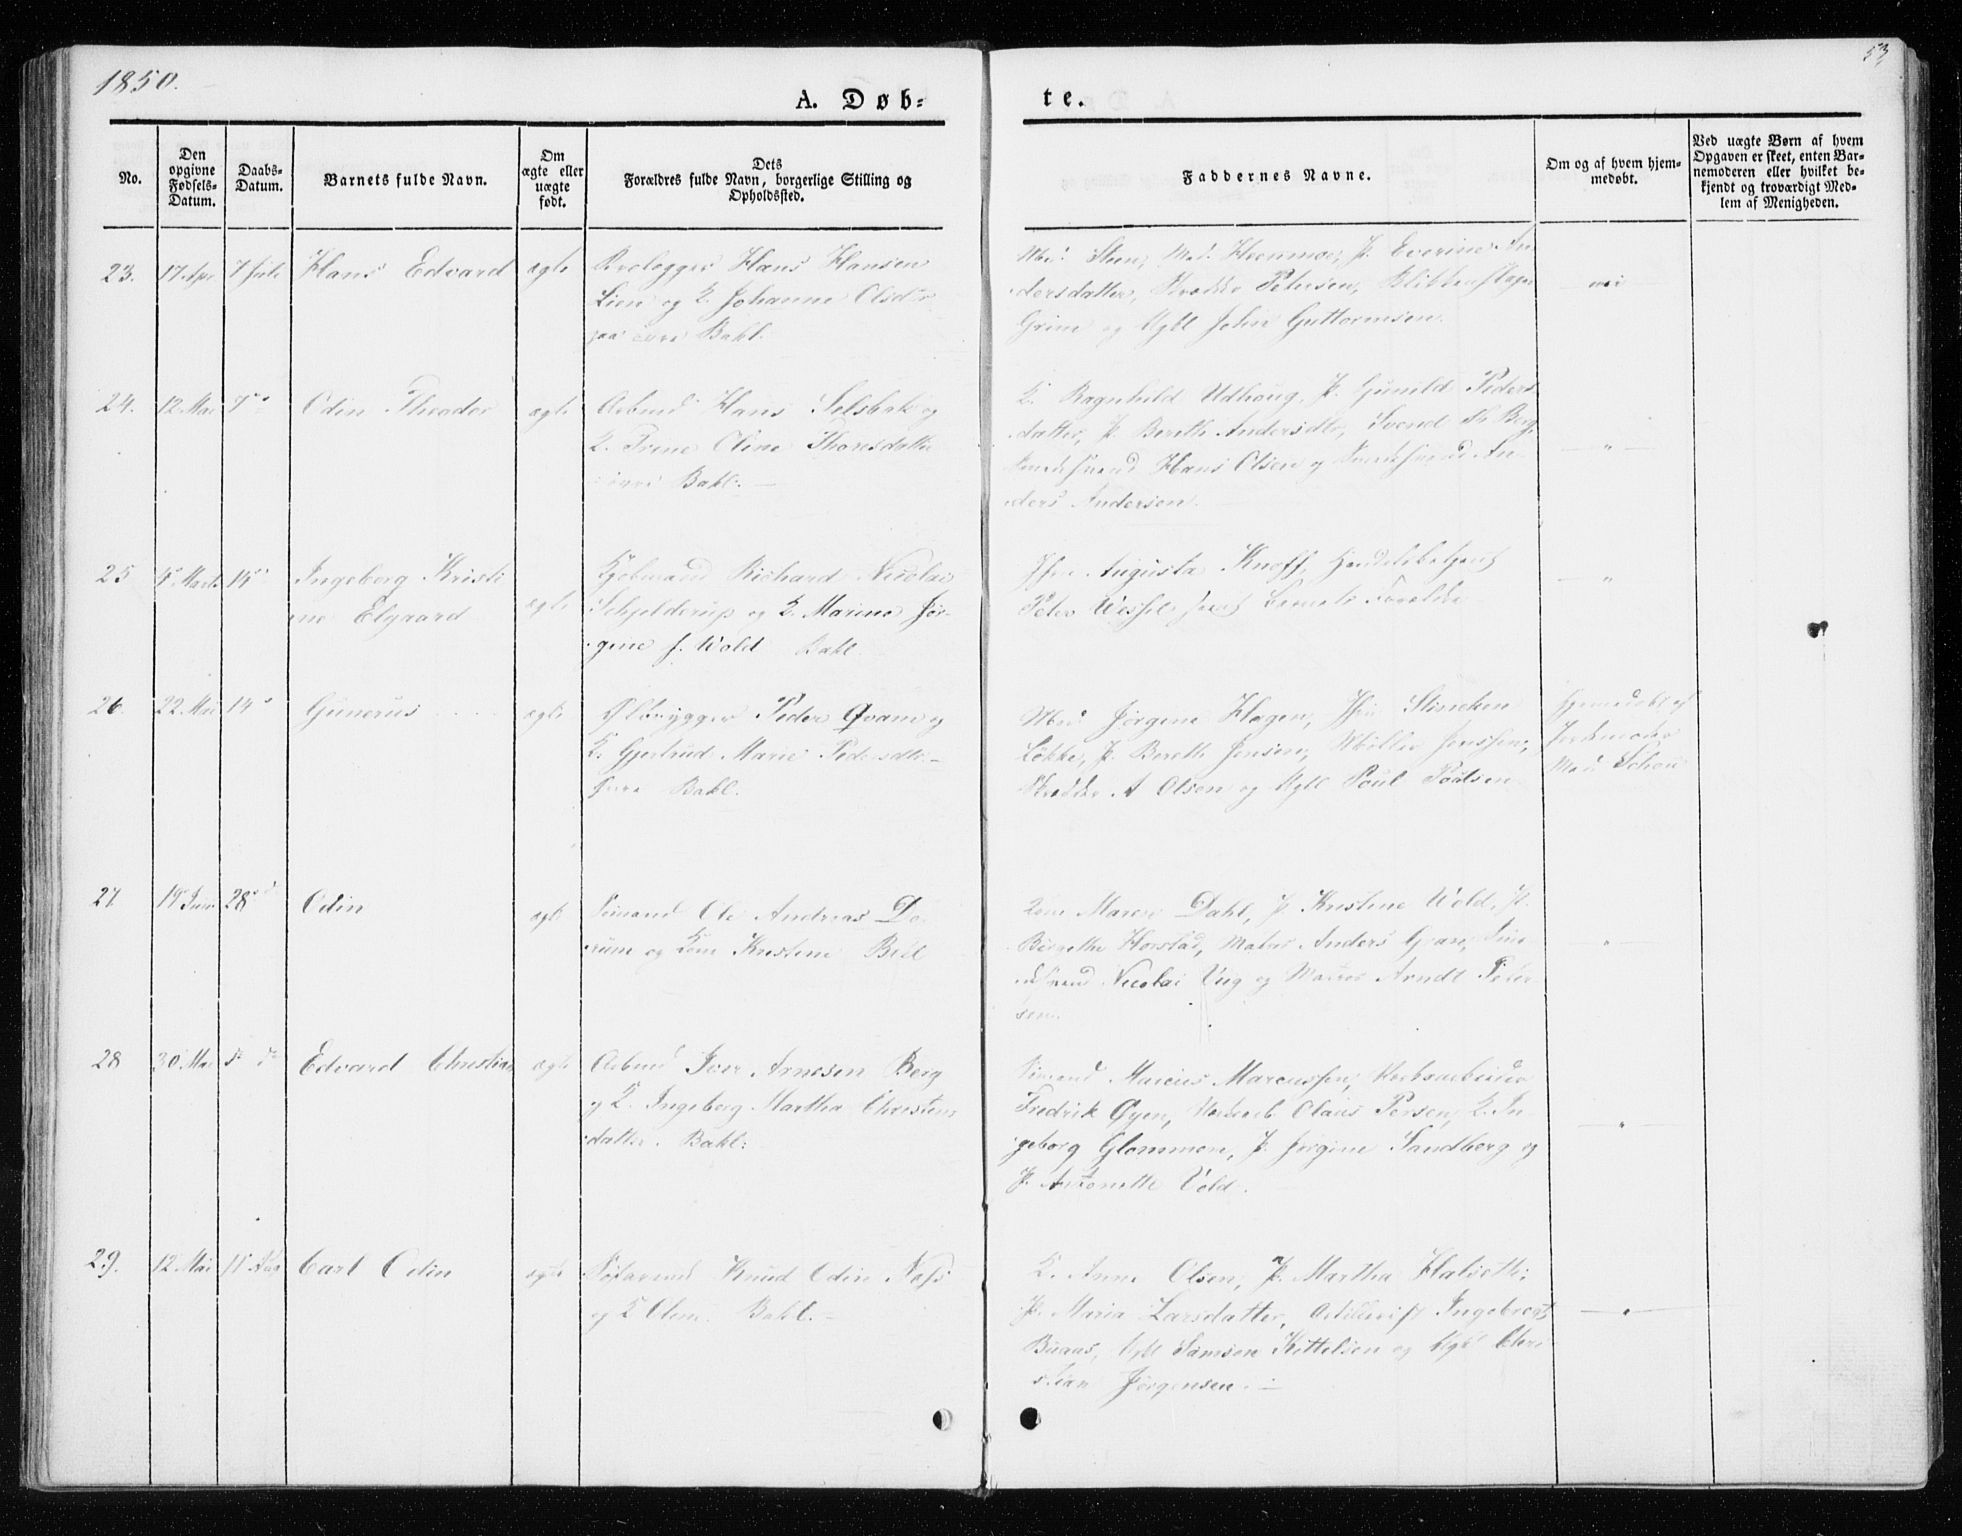 1850.
53
A. Døb-
te.
No.
Den opgivne Fødsels-Datum.
Daabs-Datum.
Barnets fulde Navn.
Om ægte eller uægte født.
Dets Forældres fulde Navn, borgerlige Stilling og Opholdssted.
Faddernes Navne.
Om og af hvem hjem-medøbt.
Ved uægte Børn af hvem Opgaven er skeet, enten Bar-nemoderen eller hvilket be-kjendt og troværdigt Med-lem af Menigheden.
23. 17 Apr 7 Juli Hans Edvard ægte
Hans Hansen
Lien og K. Johanne Olsdtr
paa øvre Bakl.
Md: Steen, Md: P. Everine An-
dersdatter, Petersen,
Grim og Ugkl John Guttormsen.
nei
24. 12 Mai 7 Odin Theodor ægte
Arbmd Hans Selsbak og
K. Trine Oline Thoresdatter
øvre Bakl: —
K. Ragnhild Udhaug, P. Gunild Peders
datter, P. Bereth Andersdtr, Svend Berg,
Hans Olsen og An-
ders Andersen.
"
25 5 Marts 14 Ingeborg Kristi
ne Elgaard
ægte
Kjøbmand Richard Nicolai
Schjelderup og K. Marine Jør-
gine f. Wold Bakl.
Jfru Augusta Knoff, Handelsbetjent
Peter Wessel samt Barnets Forældre
"
26. 22 Mai 14 Gunerus ægte
Peder Qvam og
K. Gjertrud Marie Pedersdtr
øvre Bakl.
Md: Jørgine Hagen, Jfru Stinchen
Løkke, P. Bereth Jensen, Møller Jenssen,
Skrædder A Olsen og Ugkl Poul Poulsen
Hjemmedøbt af
Jordmoder
Md: Schou
27. 19 Juni 28 Odin ægte
Sømand Ole Andreas Do
rum og Kone Kristine Bell
Kone Maren Dahl, P. Kristine Wold, P.
Beregitte Horstad, Matros Anders Gran,
Nicolai Vig og Arndt Peter
sen.
"
28 30 Mai Edvard Christian ægte
Arbmd Iver Arnesen Berg
og K. Ingeborg Martha Christens
datter. Bakl:
Sømand Marcus Marcussen,
Fredrik Øyen, Claus Persen, K. In
geborg Glommen, P. Jørgine Sandberg og
P. Antonette Vold.
"
29. 12 Mai 11 Aug Carl Odin ægte
Knud Odin Næss
og K Oline Bakl. —
K. Anne Olsen, P. Martha Halseth,
P. Maria Larsdatter, Ingebregt
Buaas, Ugkl Samson Kittelsen og Ugkl Chri
stian Jørgensen. —
"